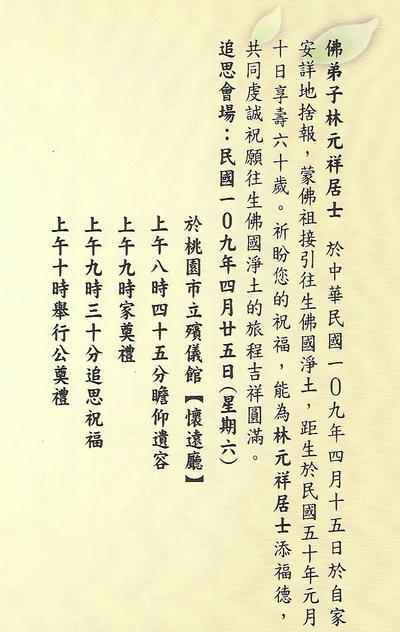 佛弟子林元祥居士　於中華民國一0九年四月十五日於自家
安詳地捨報，蒙佛祖接引往生佛國淨土，距生於民國五十年元月
十日享壽六十歲。祈盼您的祝福，能為林元祥居士添福德，
共同虔誠祝願往生佛國淨土的旅程吉祥圓滿。
追思會場：民國一0九年四月廿五日(星期六)
於桃園市立殯儀館【懷遠廳】
上午八時四十五分瞻仰遺容
上午九時家奠禮
上午九時三十分追思祝福
上午十時舉行公奠禮